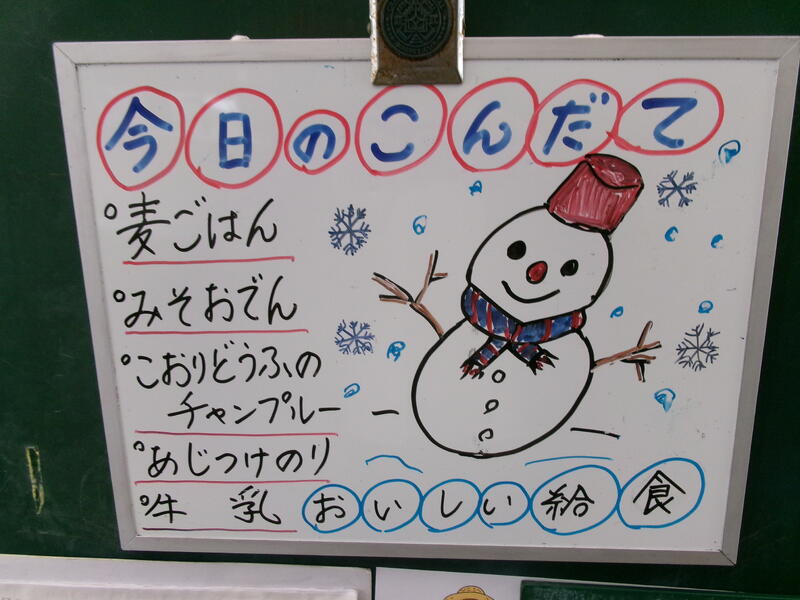 今日のこんだて
麦ごはん
みそおでん
こおりどうふの
チャンプルー
あじつけのり
牛乳
おいしい給食